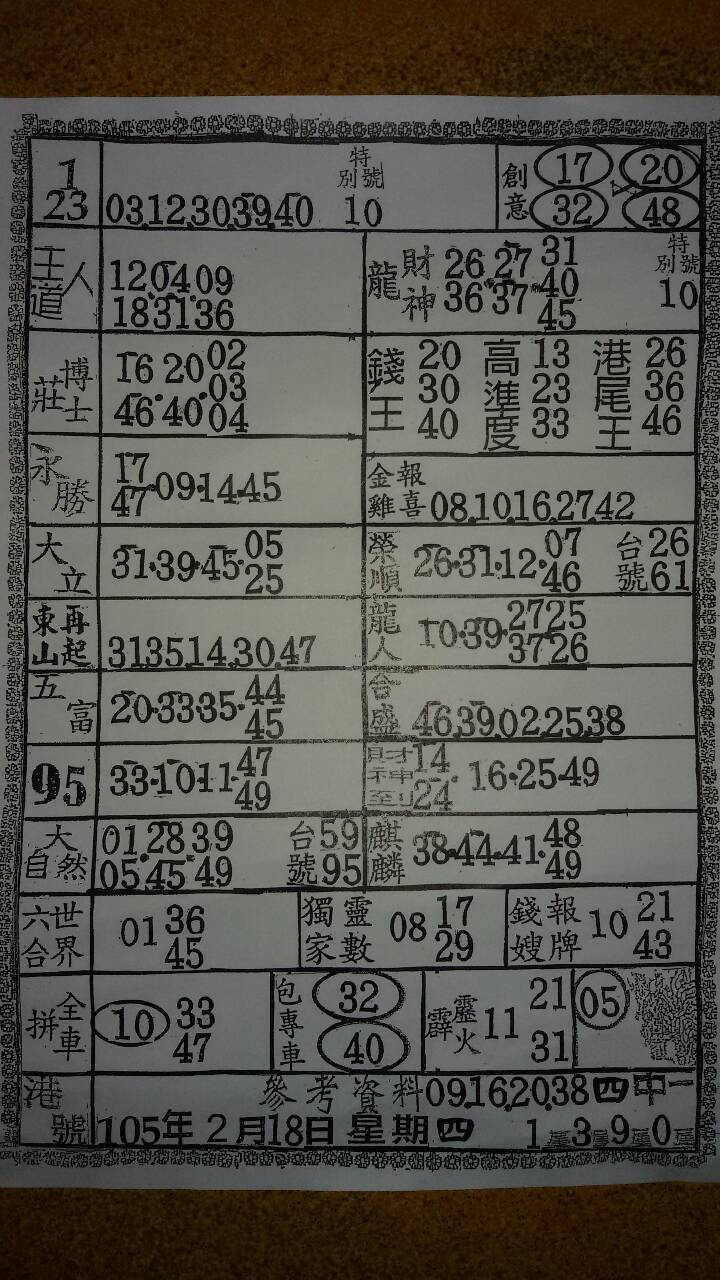 1
23
03.12.30.39.40
特別號
10
創意
17 20
32 48
王人道
12.04.09
18.31.36
龍財神
26.27.31
36.37.40
45
特別號
10
莊博士
16.20.02
03
46.40.04
錢王
20
30
40
高準度
13
23
33
港尾王
26
36
46
永勝
17
47.09.14.45
金雞報喜
08.10.16.27.42
大立
31.39.45.05
25
榮順
26.31.12.07
46
台號
26
61
東山再起
31.35.14.30.47
龍人
10.39.27 25
37 26
五富
20.33.35.44
45
合盛
46.39.02.25.38
95
33.10.11.47
49
財神到
14
24.16.25.49
大自然
01.28.39
05.45.49
台號
59
95
麒麟
38.44.41.48
49
六合世界
01 36
45
獨家靈數
08 17
29
錢嫂報牌
10 21
43
全車拼
10 33
47
包專車
32
40
霹靂火
11 21
31
05
港號
參考資料09.16.20.38四中一
105年2月18日星期四 1厘3厘9厘0厘